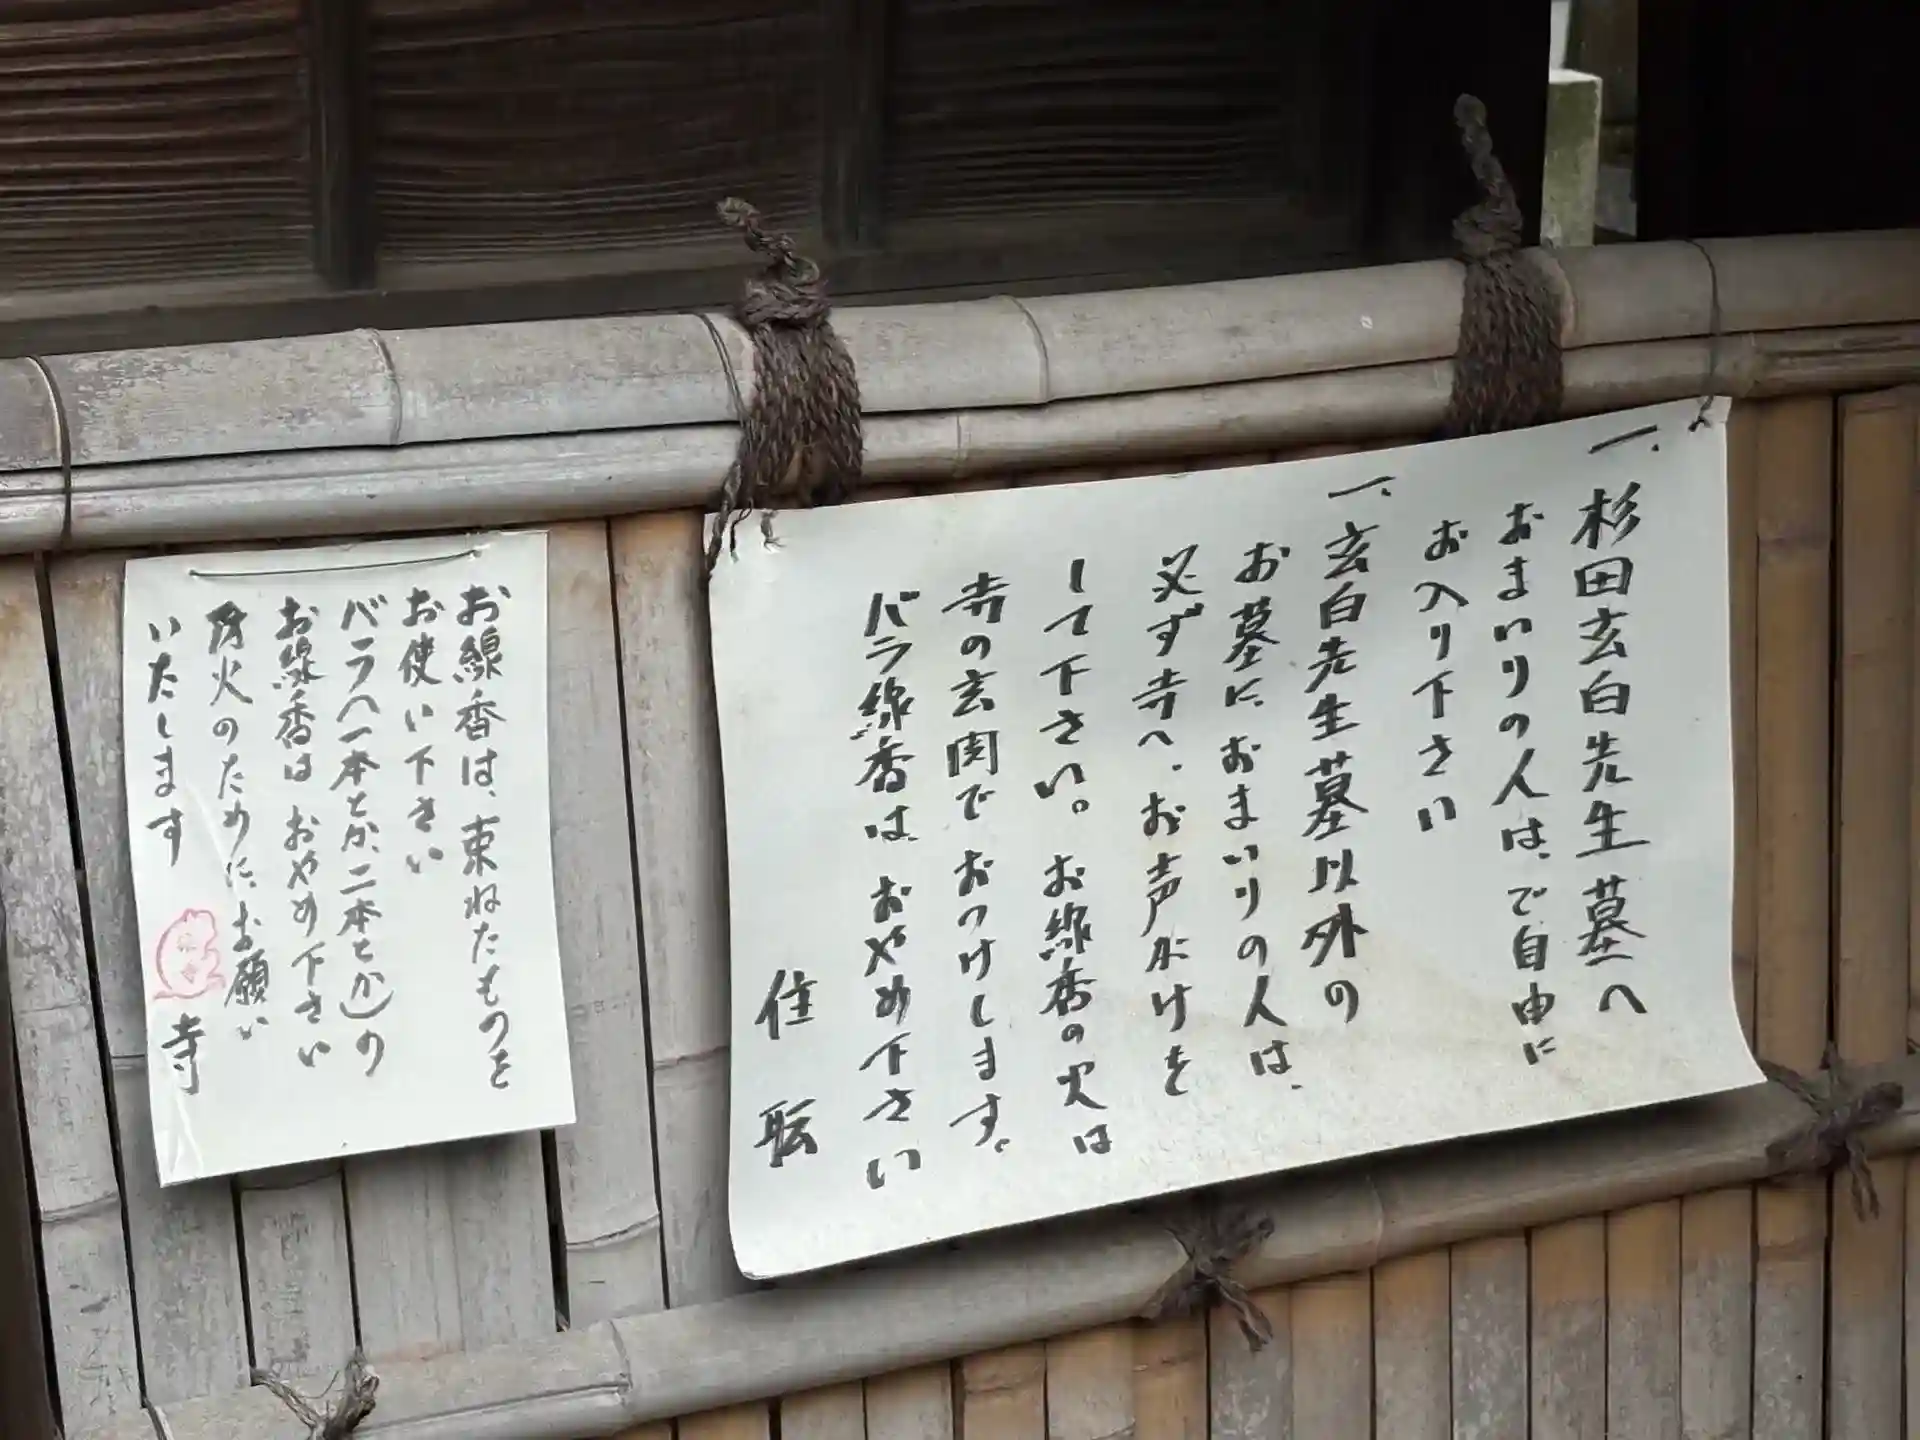 一、杉田玄白先生墓へ
おまいりの人は、で自由に
お入り下さい
一、玄白先生墓以外の
お墓に、おまいりの人は、
必ず寺へ、お声がけを
して下さい。お線香の火は
寺の玄関でおつけします。
バラ線香は、おやめ下さい
住職
お線香は、束ねたものを
お使い下さい
バラ(一本とか、二本とか)の
お線香は おやめ下さい
防火のために、お願い
いたします
寺